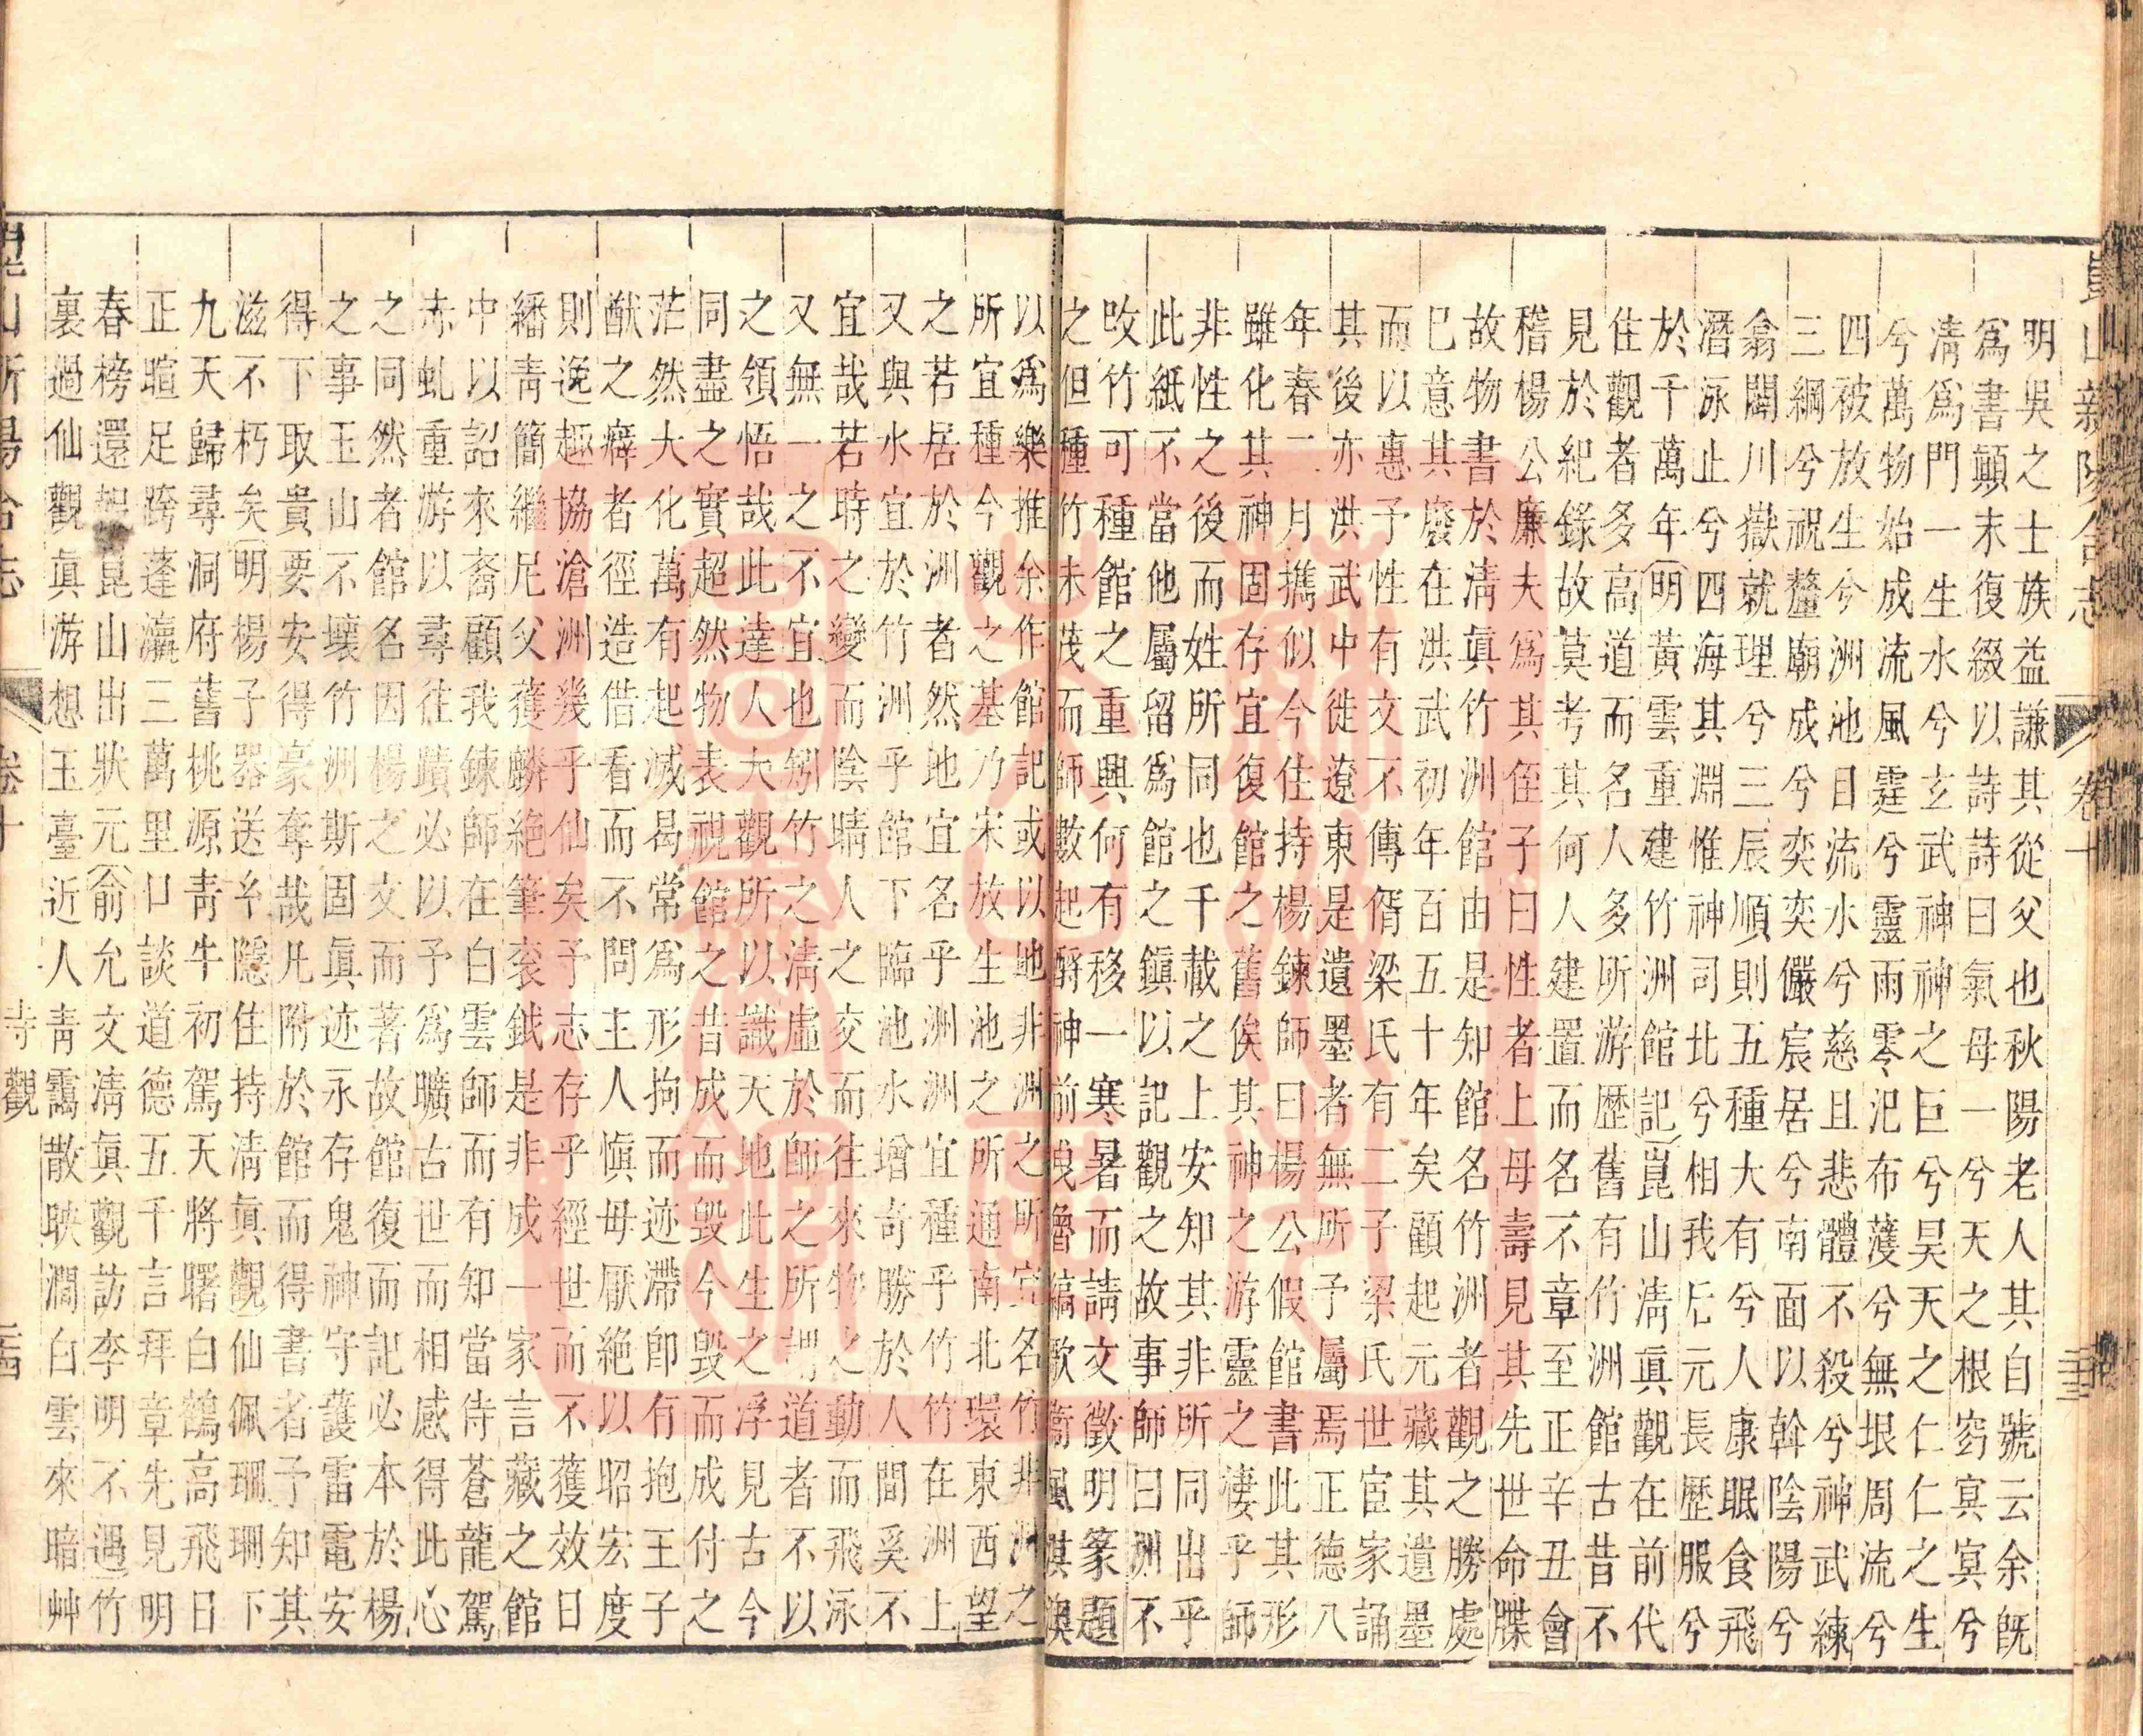 崑山新陽合志 卷十
明吳之士族益謙其從父也秋陽老人其自號云余旣
爲書顛末復綴以詩詩曰氣母一兮天之根窈冥冥兮
淸爲門一生水兮玄武神神之巨兮昊天之仁仁之生
兮萬物始成流風霆兮靈雨零汜布濩兮無垠周流兮
四被放生兮洲池日流水兮慈且悲體不殺兮神武練
三綱兮祝釐廟成兮奕奕儼宸居兮南面以斡陰陽兮
翕闢川嶽就理兮三辰順則五種大有兮人康眠食飛
潛泳止兮四海其淵惟神司北兮相我元長歷服兮
於千萬年明黃雲重建竹洲館記崑山淸眞觀在前代
住觀者多高道而名人多所游歷舊有竹洲館古昔不
見於紀錄故莫考其何人建置而名不章至正辛丑會
稽楊公廉夫爲其侄子曰性者上母壽見其先世命牒
故物書於淸眞竹洲館由是知館名竹洲者觀之勝處
已意其廢在洪武初年百五十年矣顧起元藏其遺墨
而以惠予性有交不傳偦梁氏有二子梁氏世宦家誦
其後亦洪武中徙遼東是遺墨者無所予屬焉正德八
年春二月攜似今住持楊鍊師曰楊公假館書此其形
雖化其神固存宜復館之舊俟其神之游靈之棲乎師
非性之後而姓所同也千載之上安知其非所同出乎
此紙不當他屬留爲館之鎭以記觀之故事師曰洲不
改竹可種館之重興何有移一寒暑而請文徵明篆題
之但種竹未茂而師數起酹神前曳魯縞歌衞風淇澳
以爲樂推余作館記或以地非洲之所宜名竹非洲之
所宜種今觀之基乃宋放生池之所通南北環東西望
之若居於洲者然地宜名乎洲洲宜種乎竹竹在洲上
又與水宜於竹洲乎館下臨池水增奇勝於人間奚不
宜哉若時之變而陰晴人之交而往來物之動而飛泳
又無一之不宜也矧竹之淸虛於師之所謂道者不以
之領悟哉此達人大觀所以識天地此生之浮見古今
同盡之實超然物表視館之昔成而毀今毀而成付之
茫然大化萬有起滅曷常爲形拘而迹滯卽有抱王子
猷之癖者徑造借看而不問主人愼毋厭絕以昭宏度
則逸趣協滄洲幾乎仙矣予志存乎經世而不獲效日
繙靑簡繼尼父獲麟絕筆袞鉞是非成一家言藏之館
中以詔來裔顧我鍊師在白雲師而有知當侍蒼龍駕
赤虬重游以尋往蹟必以予爲曠古世而相感得此心
之同然者館名因楊之文而著故館復而記必本於楊
之事玉山不壞竹洲斯固眞迹永存鬼神守護雷電安
得下取貴要安得豪奪哉凡附於館而得書者予知其
滋不朽矣明楊子器送牟隱住持淸眞觀仙佩珊珊下
九天歸尋洞府舊桃源靑牛初駕天將曙白鶴高飛日
正暄足跨蓬瀛三萬里口談道德五千言拜章先見明
春榜還報崑山出狀元俞允文淸眞觀訪李明不遇竹
裏過仙觀眞游想玉臺近人靑靄散映澗白雲來暗艸
卷十 寺觀